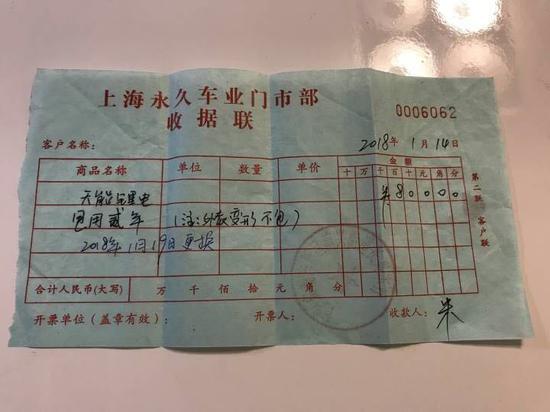 上海永久车业门市部
收据联
0006062
客户名称:
2018年1月14日
商品名称 单位 数量 单价 金额
十 万 千 百 十 元 角 分
天能
8 0 0 0 0
包用贰年 (注:外散变形不包)
2018年1月19日更换
第二联:客户联
合计人民币(大写) 万 千 佰 拾 元 角 分
开票单位(盖章有效): 开票人: 收款人: 朱